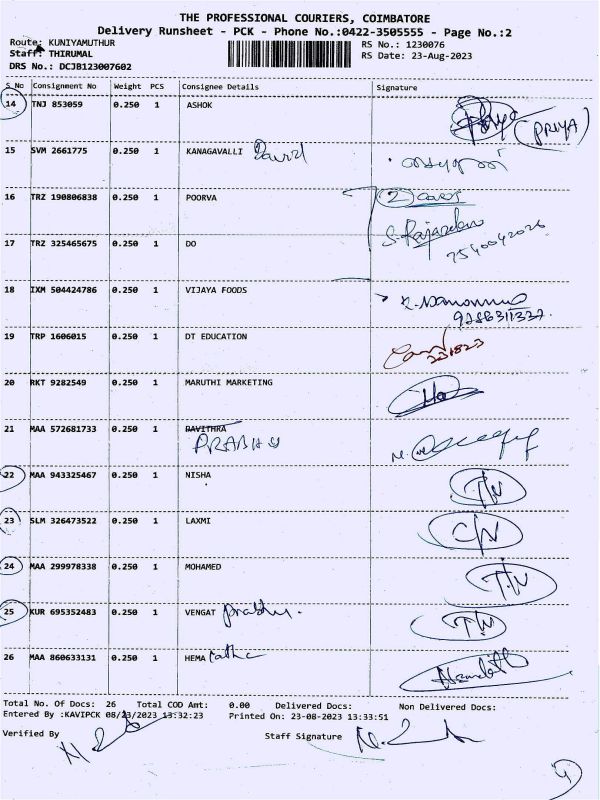 THE PROFESSIONAL COURIERS, COIMBATORE
Delivery Runsheet - PCK - Phone No.:0422-3505555 - Page No.:2
Route: KUNIYAMUTHUR
RS No.: 1230076
Staff: THIRUMAL
RS Date: 23-Aug-2023
DRS No.: DCJB123007602
S.No Consignment No Weight PCS Consignee Details Signature
14 TNJ 853059 0.250 1 ASHOK
(PRIYA)
15 SVM 2661775 0.250 1 KANAGAVALLI
16 TRZ 190806838 0.250 1 POORVA
17 TRZ 325465675 0.250 1 DO
18 IXM 504424786 0.250 1 VIJAYA FOODS
19 TRP 1606015 0.250 1 DT EDUCATION
20 RKT 9282549 0.250 1 MARUTHI MARKETING
21 MAA 572681733 0.250 1 PAVITHRA
PRABHU
22 MAA 943325467 0.250 1 NISHA T/N
23 SLM 326473522 0.250 1 LAXMI C/N
24 MAA 299978338 0.250 1 MOHAMED T/N
25 KUR 695352483 0.250 1 VENGAT prabhu. T/N
26 MAA 860633131 0.250 1 HEMA latha
Total No. Of Docs: 26 Total COD Amt: 0.00 Delivered Docs: Non Delivered Docs:
Entered By :KAVIPCK 08/23/2023 13:32:23 Printed On: 23-08-2023 13:33:51
Verified By Staff Signature